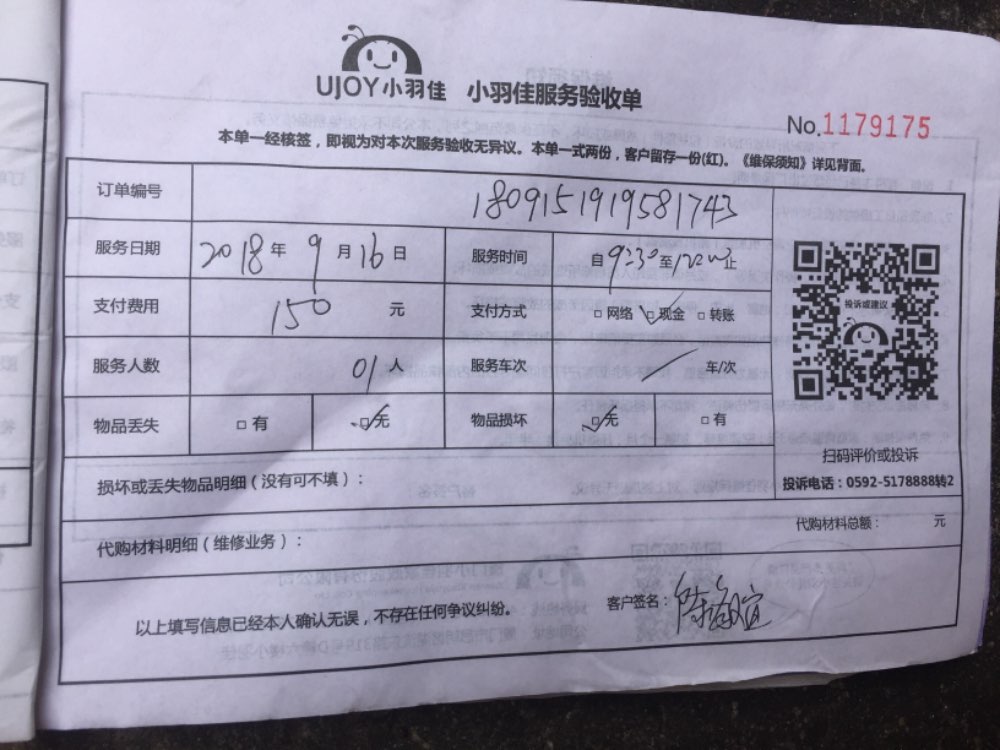 UJOY小羽佳 小羽佳服务验收单
No.1179175
本单一经核签，即视为对本次服务验收无异议。本单一式两份，客户留存一份(红)。《维保须知》详见背面。
订单编号 1809151919581743
服务日期 2018年9月16日 服务时间 自9:30至12:00止
支付费用 150元 支付方式 □网络 ☑现金 □转账
服务人数 01人 服务车次 / 车/次
物品丢失 □有 ☑无 物品损坏 ☑无 □有
投诉或建议
扫码评价或投诉
投诉电话：0592-5178888转2
损坏或丢失物品明细（没有可不填）：
代购材料总额： 元
代购材料明细（维修业务）：
以上填写信息已经本人确认无误，不存在任何争议纠纷。
客户签名：陈